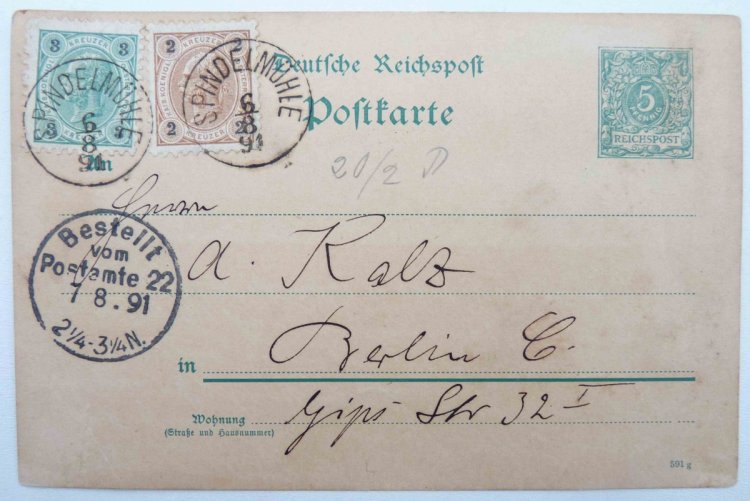 3 KREUZER 3
3 3
KREUZER
2 KREUZER 2
2 2
KREUZER
SPINDELMÜHLE
6
8
91
SPINDELMÜHLE
6
8
91
Deutsche Reichspost
Postkarte
5
PFENNIG
REICHSPOST
An
20/2
Herrn
Bestellt
vom
Postamte 22
7 8.91
2¼-3¼N.
A. Kalz
in Berlin C.
Wohnung Gips Str 32 I
(Straße und Hausnummer)
591 g